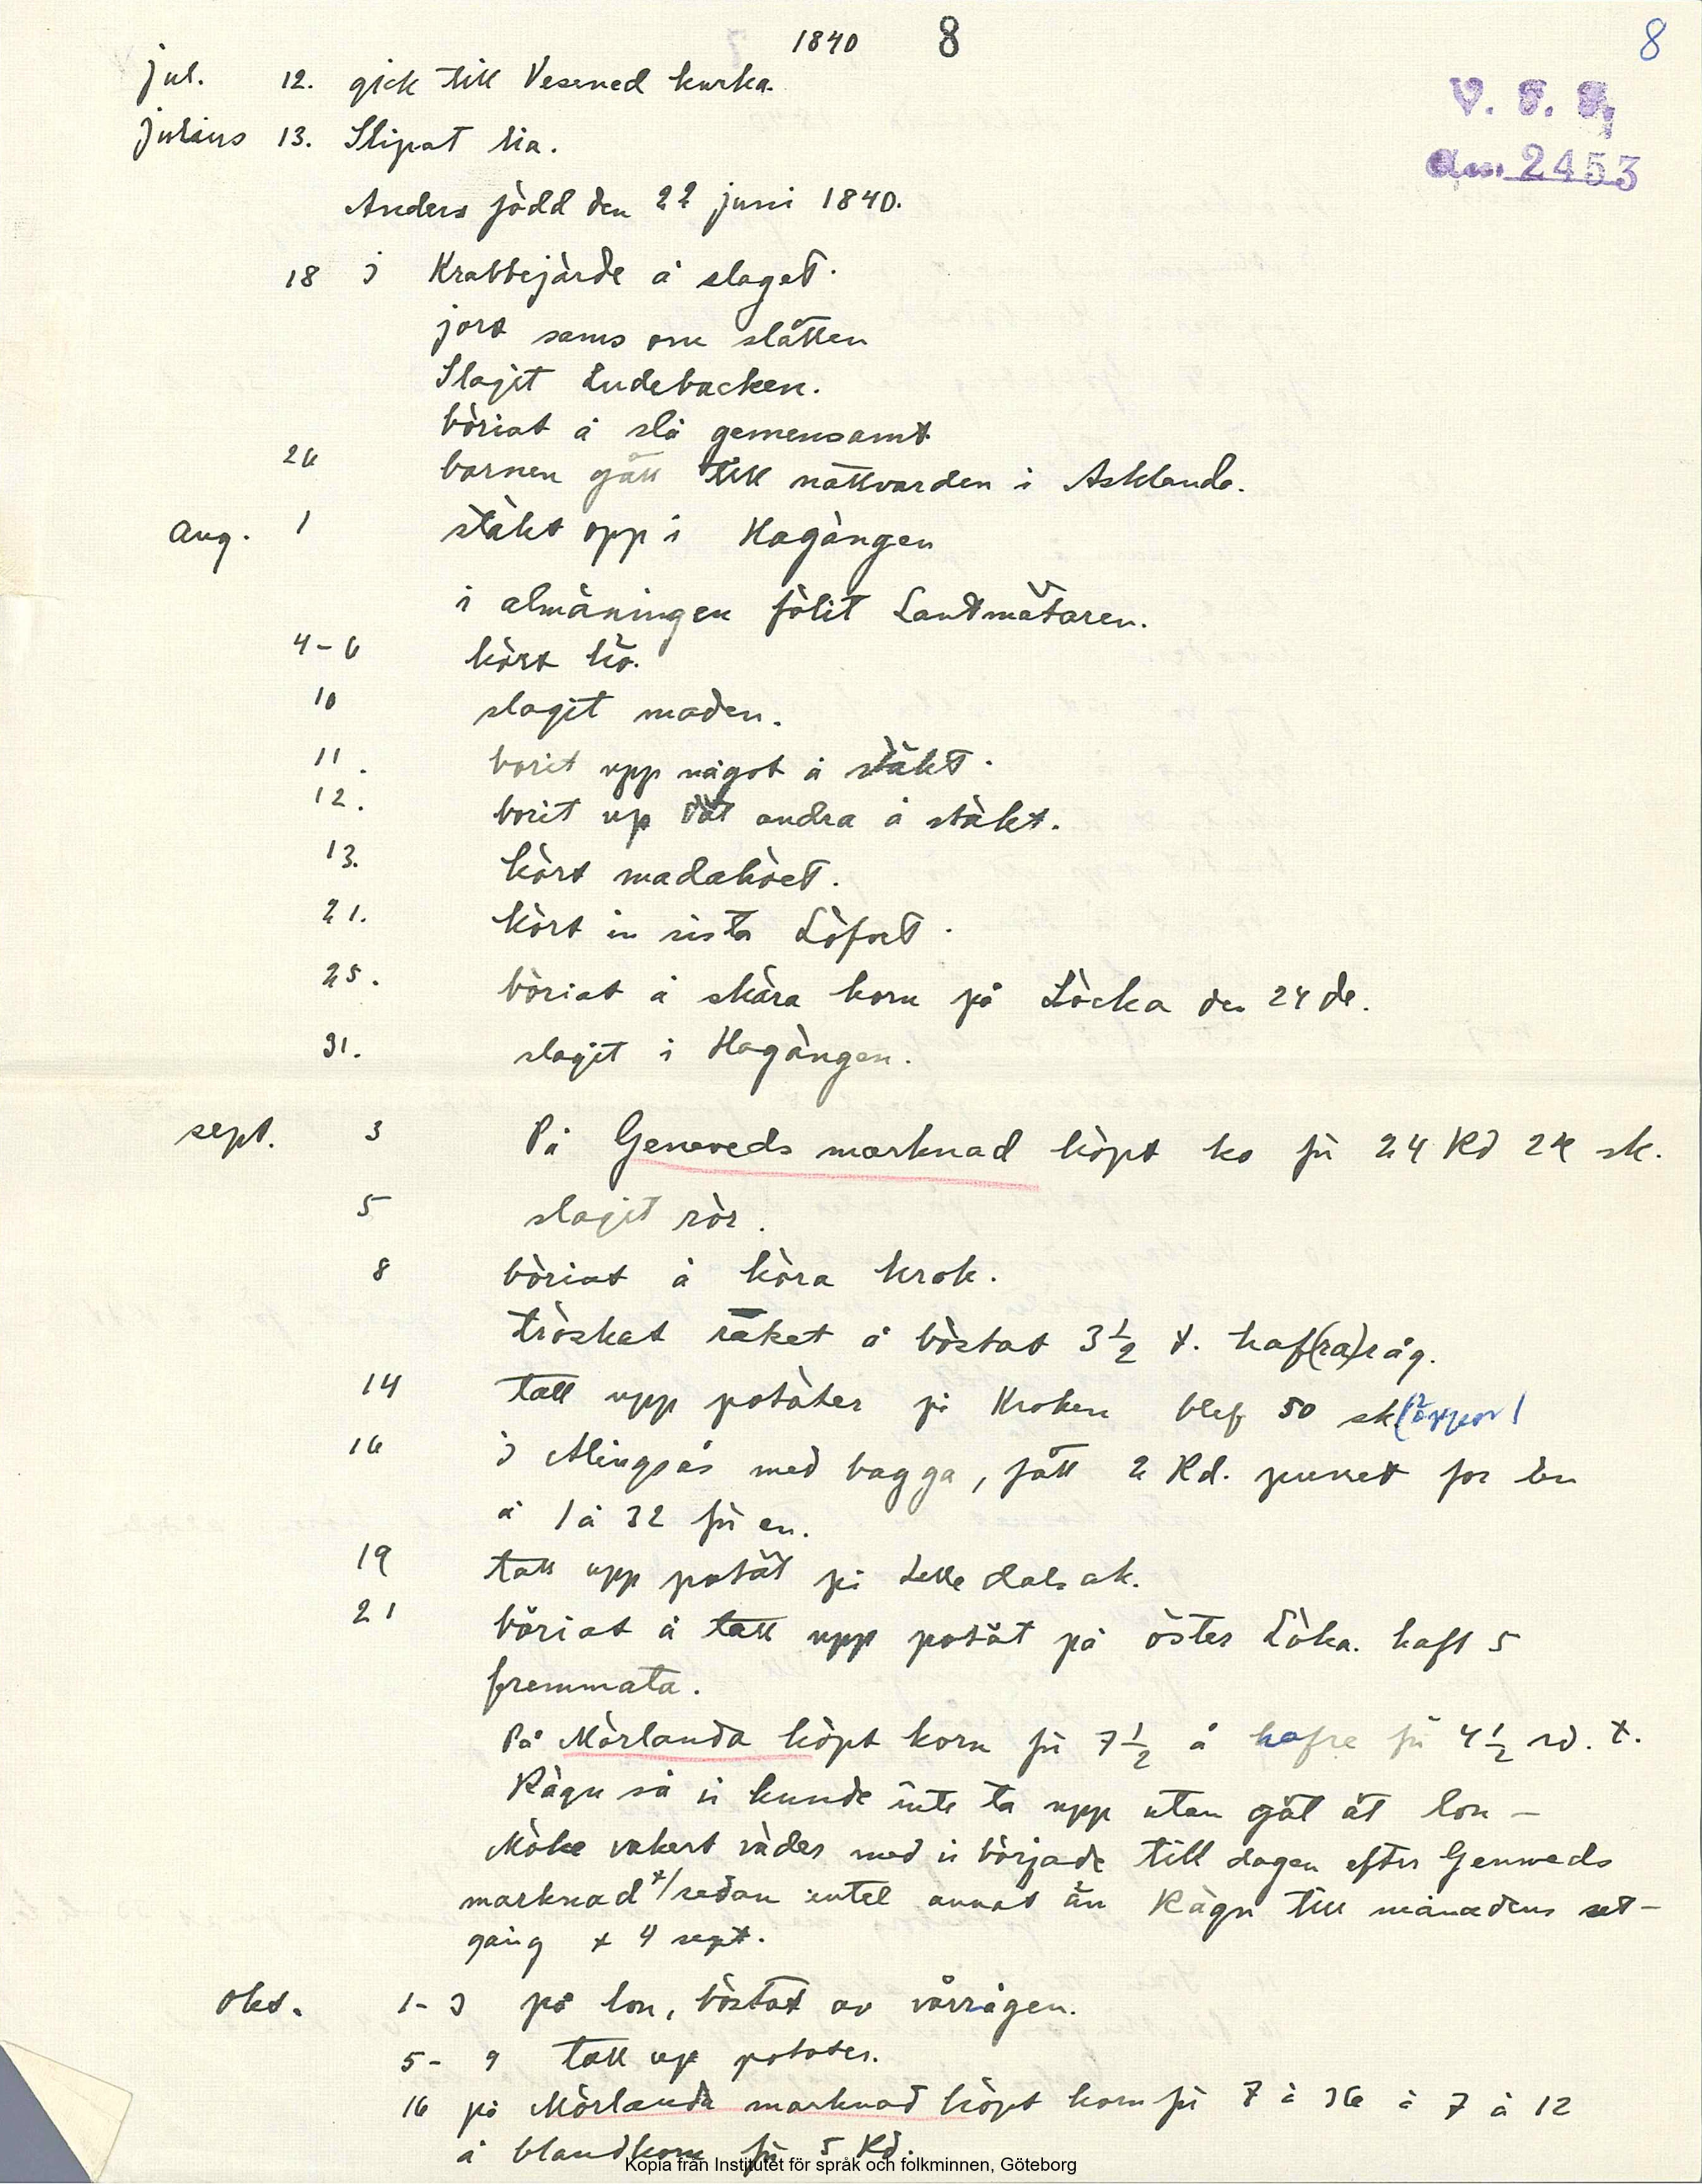 1840 8 8
V. F. F.
Acc. 2453
jul. 12. gick till Vesened kurka.
julius 13. Slipat lia.
Anders född den 22 juni 1840.
18 I Krabbejärde å slaget.
jort sams om slåtten
Slajit Ludebacken.
böriat å slå gemensamt
26 barnen gått till nattvarden i Asklanda.
Aug. 1 stäkt opp i Hagången
i almäningen fölit Lantmätaren.
4-6 kört hö.
10 slagit maden.
11. borit upp något å stäkt.
12. borit up dät andra å stäkt.
13. kört madahöet.
21. kört in sista Löfvet.
25. böriat å skära korn på Löcka den 24 de.
31. slajit i Hagången.
sept. 3 På Geneveds marknad köpt ko för 24 Rd 24 sk.
5 slajit rör.
8 böriat å köra krok.
tröskat räket å böstat 3 1/2 t. haf(ra)råg.
14 tatt upp potäter på Kroken blef 50 sk(äppor)
16 I Alingsås med bagga, fått 2 Rd. punnet for en
å 1 å 32 för en.
19 tatt upp potät på Lelle dals ak.
21 böriat å tatt upp potät på öster Löka. haft 5
fremmata.
På Mörlanda köpt korn för 7 1/2 å hafre för 4 1/2 rd. t.
Rägn så vi kunde inte ta upp utan gåt åt lon -
Möke vakert väder med vi började till dagen efter Genweds
marknad x/ sedan intet annat än Rägn till månadens ut-
gång x 4 sept.
okt. 1-3 på lon, böstat av vårrågen.
5-9 tatt up potater.
16 på Mörlanda marknad köpt korn för 7 å 36 å 7 å 12
å blandkorn för 5 Rd.
Kopia från Institutet för språk och folkminnen, Göteborg